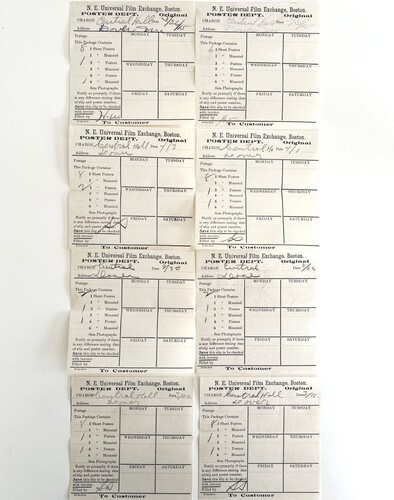 N. E. Universal Film Exchange, Boston.
POSTER DEPT. Original
CHARGE Central Hall Date
Address
Postage MONDAY TUESDAY
This Package Contains
8 1 Sheet Posters
1 " Mounted
1 3 " Posters WEDNESDAY THURSDAY
3 " Mounted
1 6 " Posters
6 " Mounted
Sets Photographs FRIDAY SATURDAY
Notify us promptly if there is
any difference stating date
of slip and poster number.
Save this slip to be checked
with invoice.
Filled by
To Customer
N. E. Universal Film Exchange, Boston.
POSTER DEPT. Original
CHARGE Central Date
Address
Postage MONDAY TUESDAY
This Package Contains
1 Sheet Posters
1 " Mounted
3 " Posters WEDNESDAY THURSDAY
3 " Mounted
6 " Posters
6 " Mounted
Sets Photographs FRIDAY SATURDAY
Notify us promptly if there is
any difference stating date
of slip and poster number.
Save this slip to be checked
with invoice.
Filled by
To Customer
N. E. Universal Film Exchange, Boston.
POSTER DEPT. Original
CHARGE Central Hall Date 4/3
Address Dover
Postage MONDAY TUESDAY
This Package Contains
8 1 Sheet Posters
1 " Mounted
2 3 " Posters WEDNESDAY THURSDAY
3 " Mounted
6 " Posters
6 " Mounted
Sets Photographs FRIDAY SATURDAY
Notify us promptly if there is
any difference stating date
of slip and poster number.
Save this slip to be checked
with invoice.
Filled by
To Customer
N. E. Universal Film Exchange, Boston.
POSTER DEPT. Original
CHARGE Central Date 4/1
Address Dover
Postage MONDAY TUESDAY
This Package Contains
8 1 Sheet Posters
1 " Mounted
1 3 " Posters WEDNESDAY THURSDAY
3 " Mounted
1 6 " Posters
6 " Mounted
Sets Photographs FRIDAY SATURDAY
Notify us promptly if there is
any difference stating date
of slip and poster number.
Save this slip to be checked
with invoice.
Filled by
To Customer
N. E. Universal Film Exchange, Boston.
POSTER DEPT. Original
CHARGE Central Date 3/30
Address Dover
Postage MONDAY TUESDAY
This Package Contains
1 Sheet Posters
1 " Mounted
1 3 " Posters WEDNESDAY THURSDAY
3 " Mounted
1 6 " Posters
6 " Mounted
Sets Photographs FRIDAY SATURDAY
Notify us promptly if there is
any difference stating date
of slip and poster number.
Save this slip to be checked
with invoice.
Filled by
To Customer
N. E. Universal Film Exchange, Boston.
POSTER DEPT. Original
CHARGE Central Date
Address Dover
Postage MONDAY TUESDAY
This Package Contains
1 Sheet Posters
1 " Mounted
1 3 " Posters WEDNESDAY THURSDAY
3 " Mounted
1 6 " Posters
6 " Mounted
Sets Photographs FRIDAY SATURDAY
Notify us promptly if there is
any difference stating date
of slip and poster number.
Save this slip to be checked
with invoice.
Filled by
To Customer
N. E. Universal Film Exchange, Boston.
POSTER DEPT. Original
CHARGE Central Hall Date
Address Dover
Postage MONDAY TUESDAY
This Package Contains
8 1 Sheet Posters
1 " Mounted
1 3 " Posters WEDNESDAY THURSDAY
3 " Mounted
1 6 " Posters
6 " Mounted
Sets Photographs FRIDAY SATURDAY
Notify us promptly if there is
any difference stating date
of slip and poster number.
Save this slip to be checked
with invoice.
Filled by
To Customer
N. E. Universal Film Exchange, Boston.
POSTER DEPT. Original
CHARGE Central Hall Date
Address Dover
Postage MONDAY TUESDAY
This Package Contains
8 1 Sheet Posters
1 " Mounted
1 3 " Posters WEDNESDAY THURSDAY
3 " Mounted
1 6 " Posters
6 " Mounted
Sets Photographs FRIDAY SATURDAY
Notify us promptly if there is
any difference stating date
of slip and poster number.
Save this slip to be checked
with invoice.
Filled by
To Customer